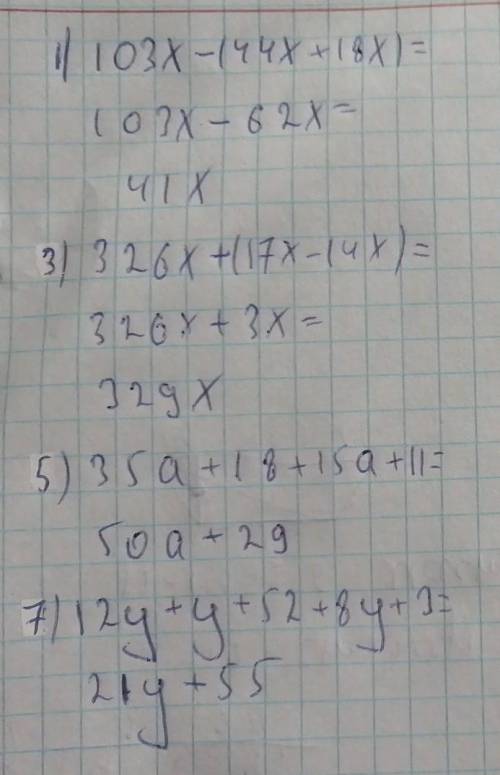 1) 103x-(44x+18x)=
103x-62x=
41x
3) 326x+(17x-14x)=
326x+3x=
329x
5) 35a+18+15a+11=
50a+29
7) 12y+y+52+8y+3=
21y+55